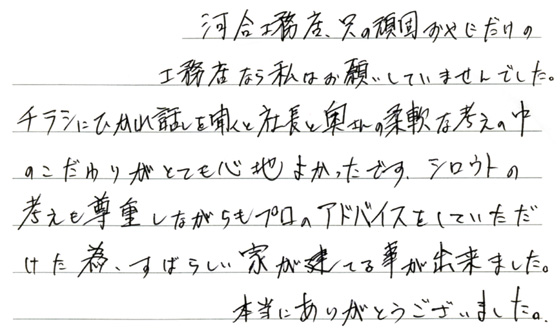 河合工務店、只の頑固おやじだけの
工務店なら私はお願いしていませんでした。
チラシにひかれ話しを聞くと社長と奥さんの柔軟な考えの中
のこだわりがとても心地よかったです。シロウトの
考えも尊重しながらもプロのアドバイスをしていただ
けた為、すばらしい家が建てる事が出来ました。
本当にありがとうございました。